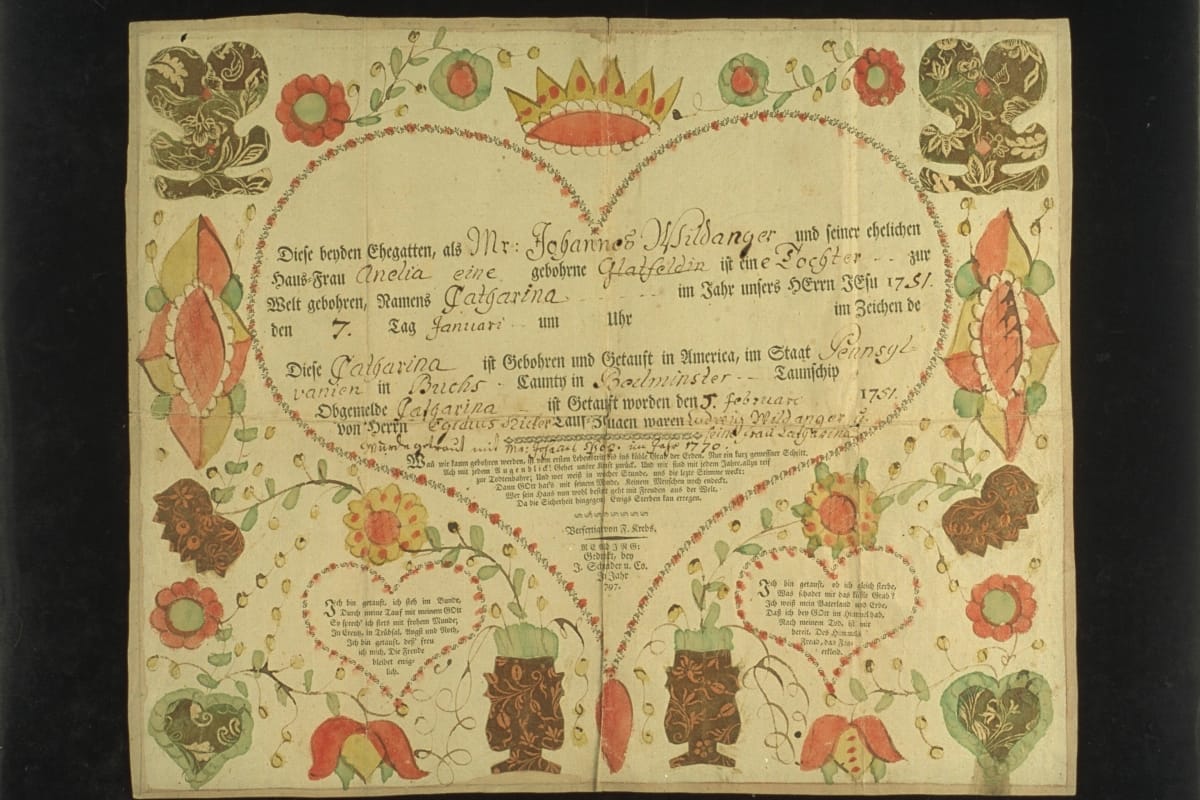 Diese beyden Ehegatten, als Mr: Johannes Wildanger und seiner ehelichen
Haus-Frau Anelia eine gebohrne Glatfeldin ist eine Tochter zur
Welt gebohren, Namens Catharina im Jahr unsers HErrn JEsu 1751.
den 7. Tag Januari um Uhr im Zeichen de
Diese Catharina ist Gebohren und Getauft in America, im Staat Pennsyl-
vanien in Buchs Caunty in Bedminster Taunschip
Obgemelde Catharina ist Getauft worden den 5. Februari 1751.
von Herrn Egidius Tauf-Zeugen waren Ludwig Wildanger u.
seine frau Catharina
Wurde getraut mit im Jahr 1770.
Was wir kamn gebohren werden, ist vom ersten Lebenstritt bis ins kühle Grab der Erden, Nur ein kurz gemeßner Schritt.
Ach mit jedem Augenblick! Gehet unsre Kraft zurück, Und wir sind mit jedem Jahre, allzu reif
zur Todtenbahre; Und wer weiß in welcher Stunde, uns die lezte Stimme weckt;
Dann GOtt hat's mit seinem Munde, Keinem Menschen noch endeckt.
Wer sein Haus nun wohl bestelt geht mit Freuden aus der Welt,
Da die Sicherheit hingegen, Ewigs Sterben kan erregen.
Verfertigt von F. Krebs.
READING:
Gedrukt, bey
J. Schneider u. Co.
Im Jahr
797.
Ich bin getauft, ich steh im Bunde,
Durch meine Tauf mit meinem GOtt
So sprech' ich stets mit frohem Munde;
In Creutz, in Trübsal, Angst und Noth,
Ich bin getauft, deß' freu
ich mich, Die Freude
bleibet ewig-
lich.
Ich bin getauft, ob ich gleich sterbe,
Was schadet mir das kühle Grab?
Ich weiß mein Vaterland und Erbe,
Daß ich bey GOtt im Himmel hab,
Nach meinem Tod, ist mir
bereit, Des Himmels
Freud, das Fey-
erkleid.